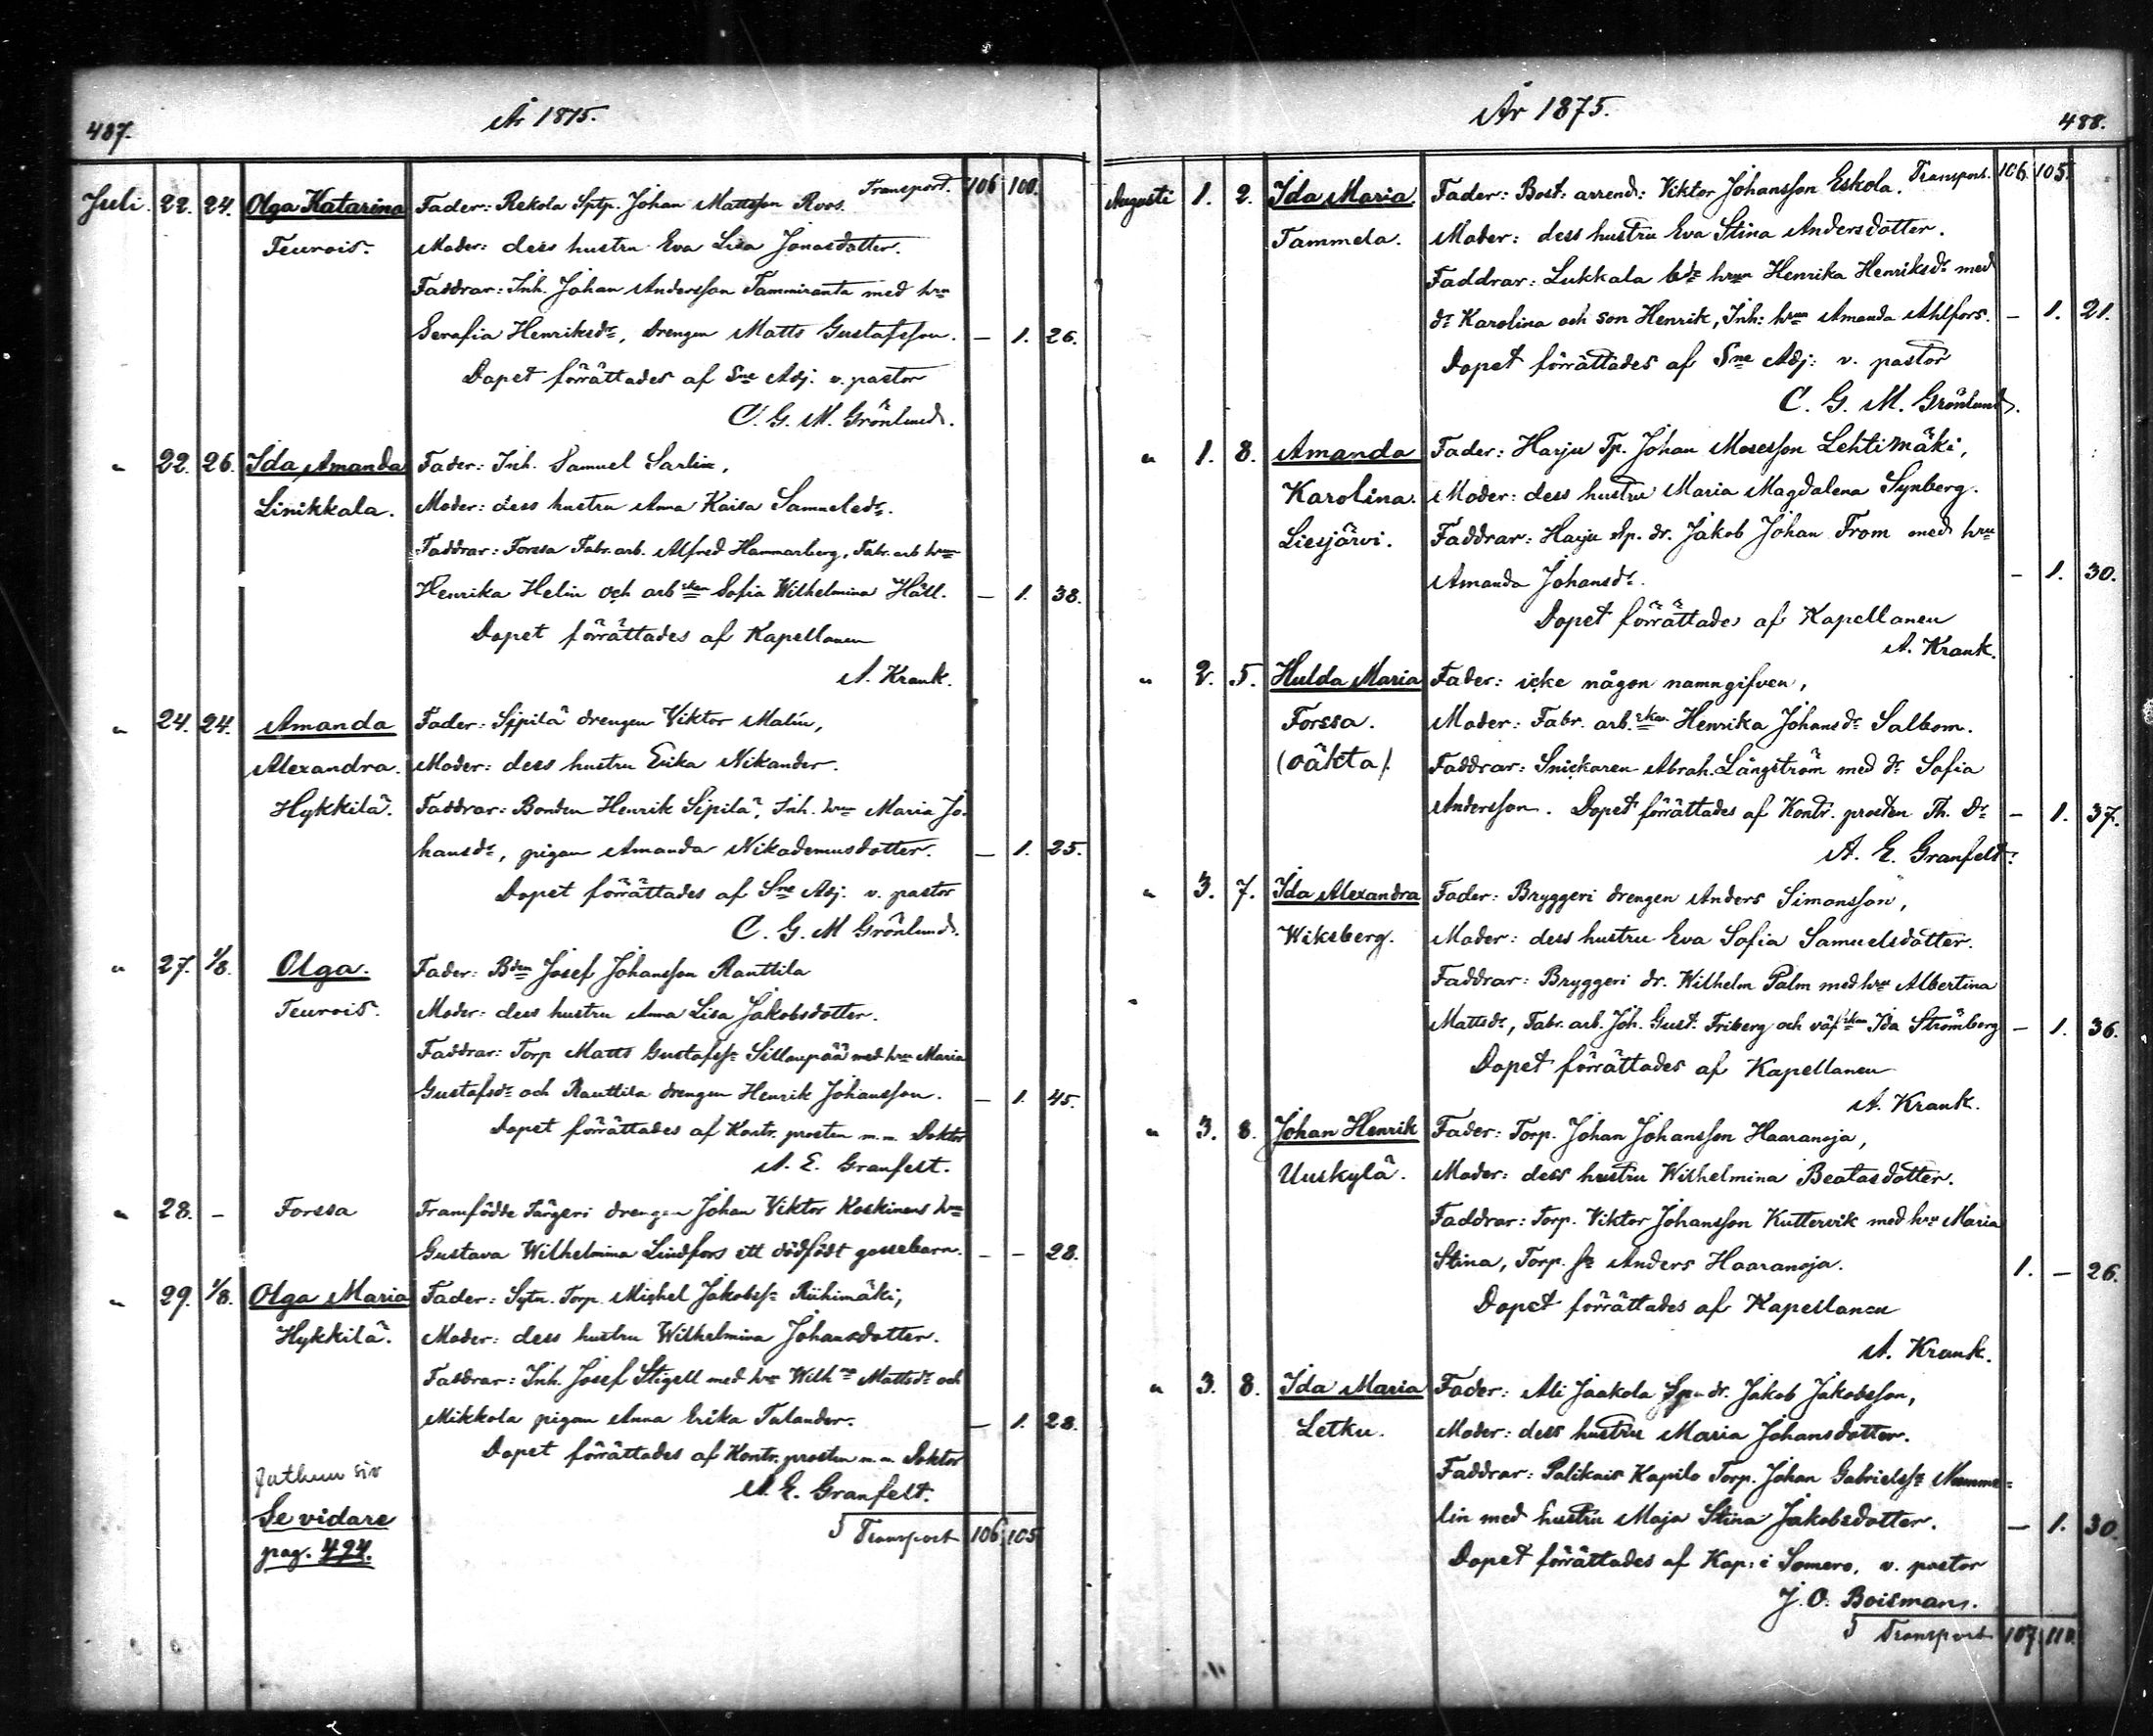 487.
År 1875.
Transport. 106 100.
Juli. 22. 24. Olga Katarina Fader: Rekola Sptp. Johan Mattsson Roos.
Teurois. Moder: dess hustru Eva Lisa Jonasdotter.
Faddrar: Inh. Johan Andersson Tammiranta med hru
Serafia Henriksdr, drengen Matts Gustafsson. — 1. 26.
Dopet förrättades af Sne Adj. v. pastor
C. G. M. Grönlund.
" 22. 26. Ida Amanda Fader: Inh. Samuel Sarlin,
Linikkala. Moder: dess hustru Anna Kaisa Samuelsdr.
Faddrar: Forssa Fabr. arb. Alfred Hammarberg, Fabr. arb hru
Henrika Helin och arbskan Sofia Wilhelmina Häll. — 1. 38.
Dopet förrättades af Kapellanen
A. Krank.
" 24. 24. Amanda Fader: Sipilä drengen Viktor Malin,
Alexandra. Moder: dess hustru Erika Nikander.
Hykkilä. Faddrar: Bonden Henrik Sipilä, Inh. hru Maria Jo-
hansdr, pigan Amanda Nikodemusdotter. — 1. 25.
Dopet förrättades af Sne Adj. v. pastor
C. G. M Grönlund.
" 27. 1/8. Olga. Fader: Bden Josef Johansson Ranttila
Teurois. Moder: dess hustru Anna Lisa Jakobsdotter.
Faddrar: Torp Matts Gustafss: Sillanpää med hru Maria
Gustafsdr och Ranttila drengen Henrik Johansson. — 1. 45.
Dopet förrättades af Kontr. prosten m.m. Doktor
A. E. Granfelt.
" 28. — Forssa Framfödde Färgeri drengen Johan Viktor Koskinens hru
Gustava Wilhelmina Lindfors ett dödfödt gossebarn. — — 28.
" 29. 1/8. Olga Maria Fader: Sytn. Torp. Michel Jakobss: Riihimäki,
Hykkilä. Moder: dess hustru Wilhelmina Johansdotter.
Faddrar: Inh. Josef Stigell med hru Wilhna Mattsdr och
Mikkola pigan Anna Erika Talander. — 1. 28.
Dopet förrättades af Kontr. prosten m.m. Doktor
A. E. Granfelt.
Se vidare
pag. 494.
Transport 106 105
År 1875.
488.
Transport. 106. 105.
Augusti 1. 2. Ida Maria. Fader: Bost: arrend: Viktor Johansson Eskola.
Tammela. Moder: dess hustru Eva Stina Andersdotter.
Faddrar: Lukkala bde hrun Henrika Henriksdr med
dr Karolina och son Henrik, Inh: hrun Amanda Ahlfors. — 1. 21.
Dopet förrättades af Sne Adj: v. pastor
C. G. M. Grönlund.
" 1. 8. Amanda Fader: Harju Tp. Johan Mosesson Lehtimäki,
Karolina. Moder: dess hustru Maria Magdalena Synberg.
Liesjärvi. Faddrar: Harju dr. Jakob Johan From med hru
Amanda Johansdr. — 1. 30.
Dopet förrättades af Kapellanen
A. Krank.
" 2. 5. Hulda Maria Fader: icke någon namngifven,
Forssa. Moder: Fabr. arb.skan Henrika Johansdr Salbom.
(oäkta). Faddrar: Snickaren Abrah. Långström med dr Sofia
Andersson. Dopet förrättades af Kontr. prosten Th. Dr — 1. 37.
A. E. Granfelt.
" 3. 7. Ida Alexandra Fader: Bryggeri drengen Anders Simonsson,
Wiksberg. Moder: dess hustru Eva Sofia Samuelsdotter.
Faddrar: Bryggeri dr. Wilhelm Palm med hru Albertina
Mattsdr, Fabr. arb. Joh. Gust. Friberg och väfskan Ida Strömberg — 1. 36.
Dopet förrättades af Kapellanen
A. Krank.
" 3. 8. Johan Henrik Fader: Torp. Johan Johansson Haaranoja,
Uuskylä. Moder: dess hustru Wilhelmina Beatasdotter.
Faddrar: Torp. Viktor Johansson Kuttervik med hru Maria
Stina, Torp. sn Anders Haaranoja. 1. — 26.
Dopet förrättades af Kapellanen
A. Krank.
" 3. 8. Ida Maria Fader: Ali Jaakola dr. Jakob Jakobsson,
Letku. Moder: dess hustru Maria Johansdotter.
Faddrar: Palikais Kapilo Torp. Johan Gabrielss: Numme-
lin med hustru Maja Stina Jakobsdotter. — 1. 30.
Dopet förrättades af Kap: i Somero, v. pastor
J. O. Boisman.
Transport 107 110.